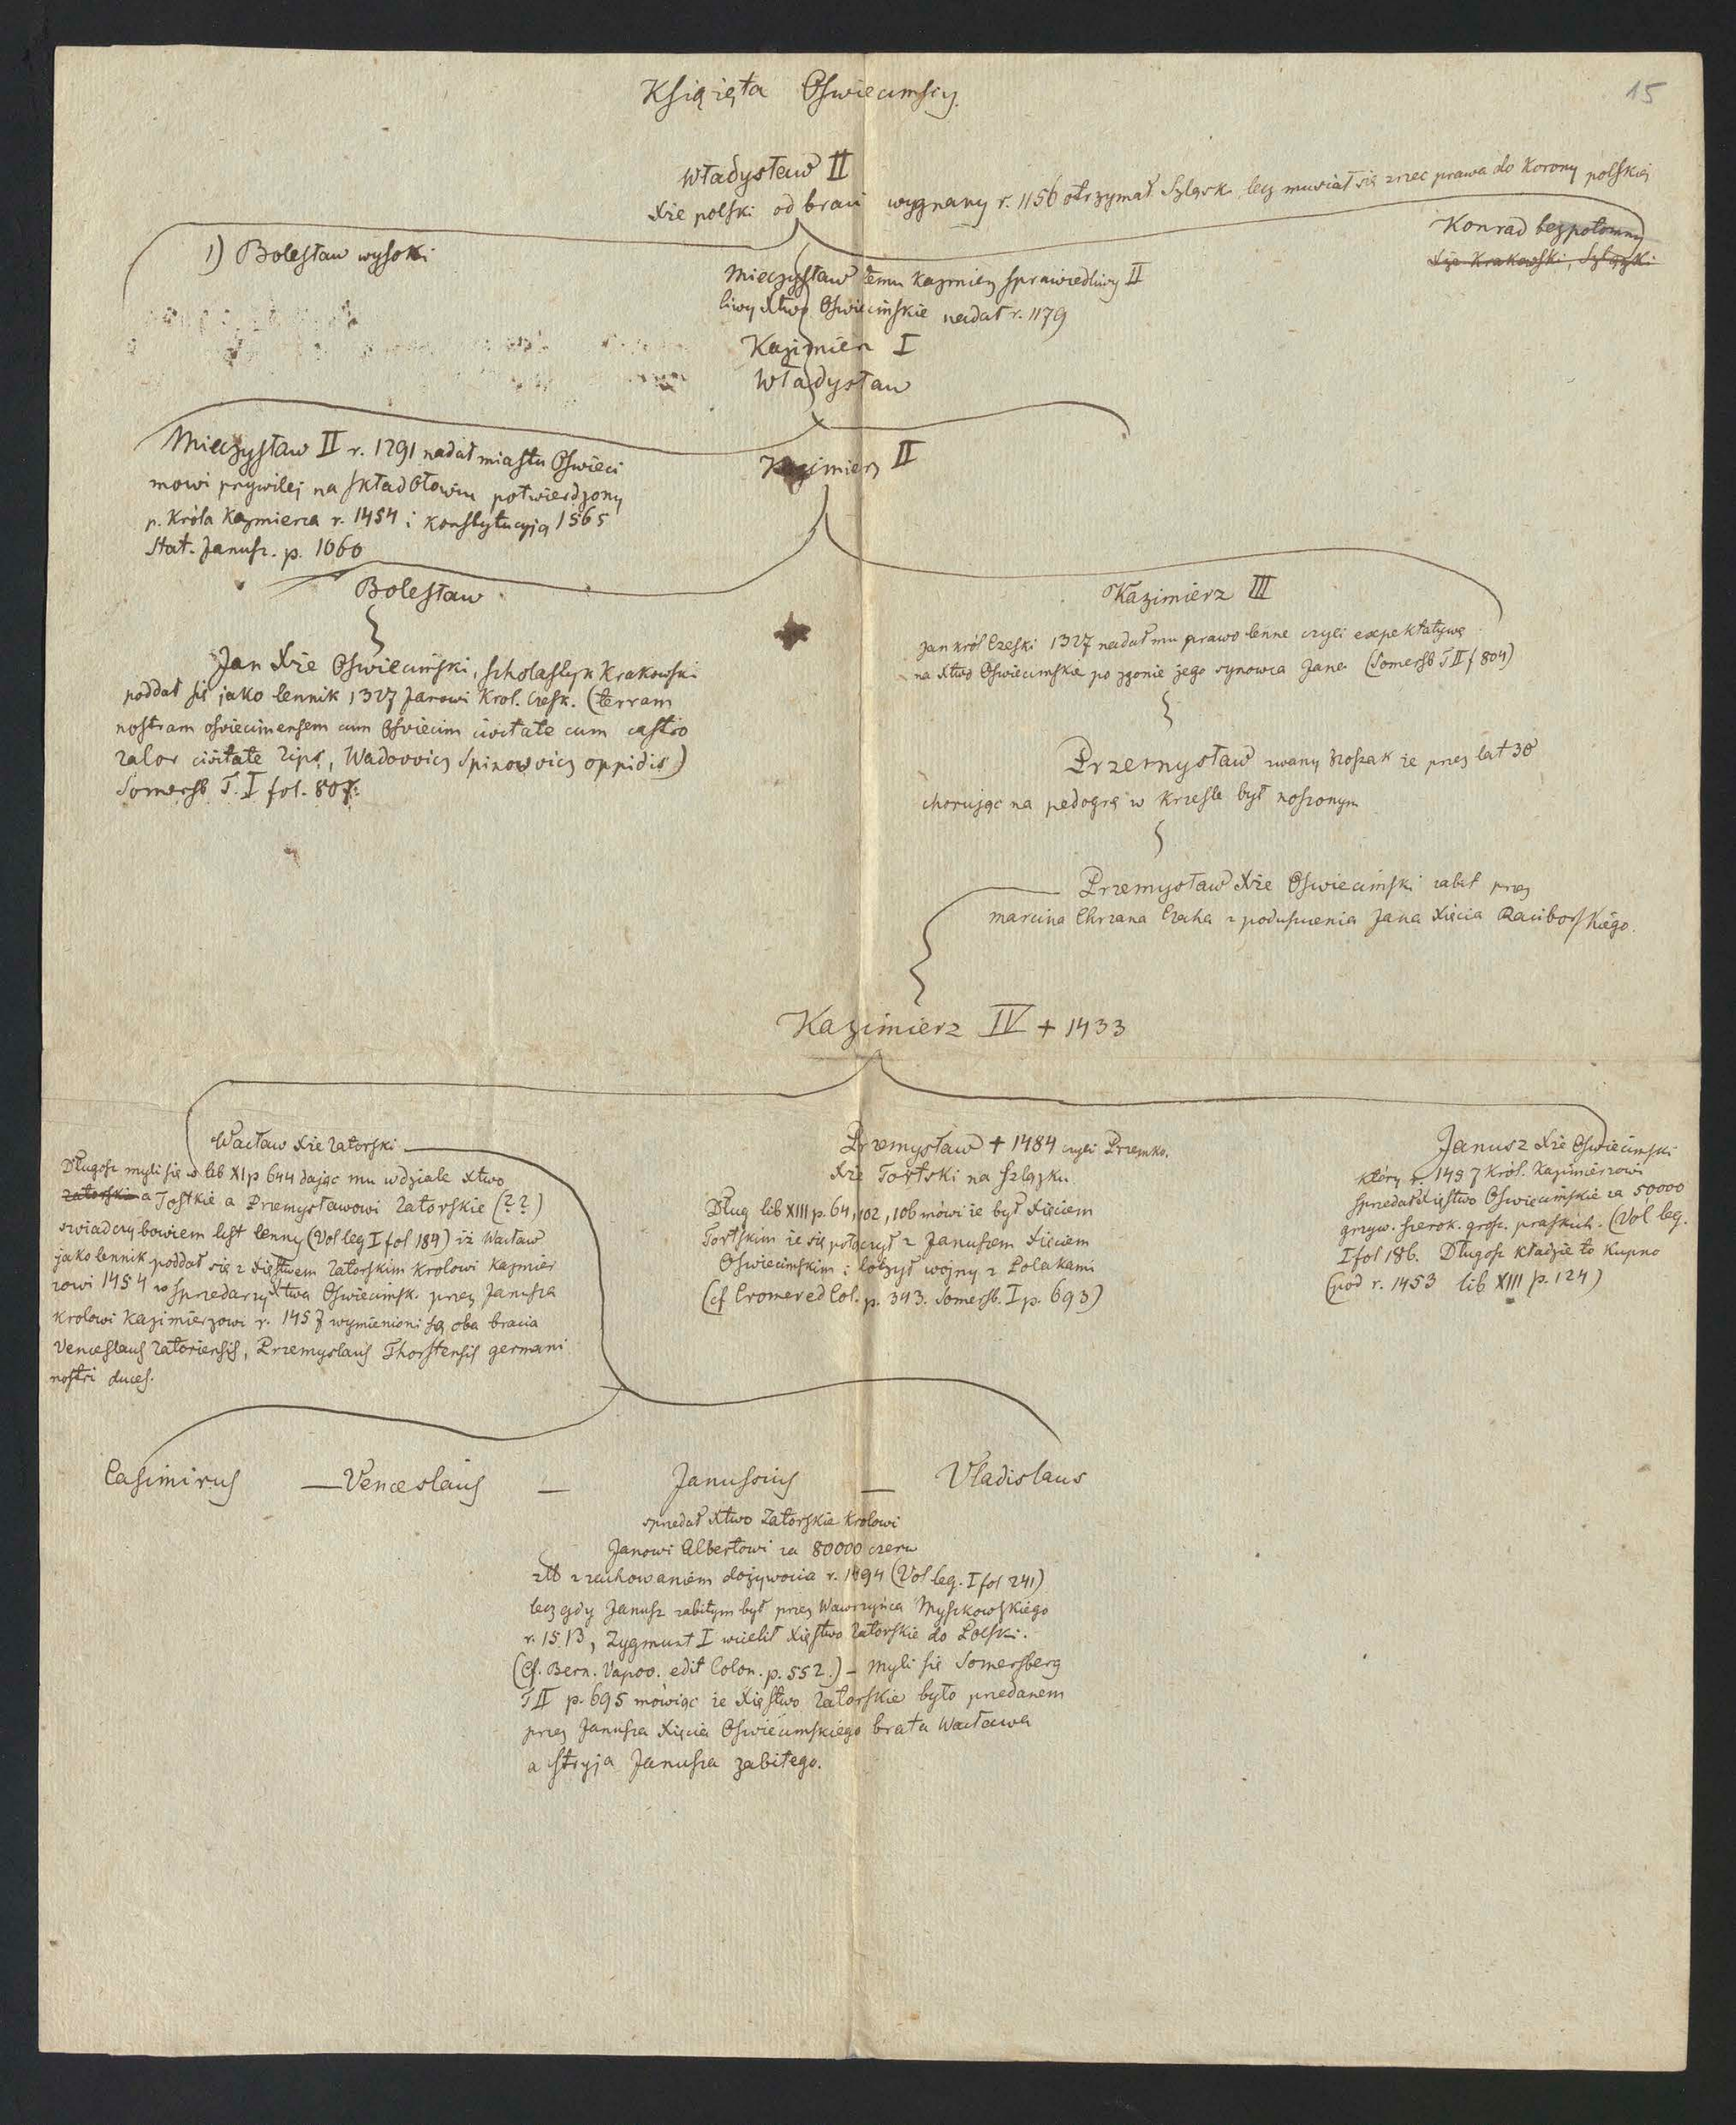 15
Książęta Oswiecimscy.
Władysław II
Xże polski od braci wygnany r. 1156 otrzymał Szląsk lecz musiał się zrzec prawa do Korony polskiej
1) Bolesław wysoki
Konrad bezpotomny
Xże Krakowski, Szlązki
Mieczysław temu Kazmierz sprawiedliwy II
liwy Xtwo Oswiecimskie nadał r. 1179
Kazimierz I
Władysław
Mieczysław II r. 1291 nadał miastu Oswieci
mowi przywilej na skład Ołowiu potwierdzony
p. Króla Kazmierza r. 1454 i Konstytucyją 1565
Stat. Janusz. p. 1060
Kazimierz II
Bolesław
Kazimierz III
Jan król Czeski 1327 nadał mu prawo lenne czyli expektatywę
na Xtwo Oswiecimskie po zgonie jego synowca Jana (Somersb T II f 804)
Jan Xże Oswiecimski, Scholastyk Krakowski
poddał się jako lennik 1327 Janowi Krol. Czesk. (terram
nostram osviecimensem cum Osviecim civitate cum castro
Zator civitate Wadowicz Spikowicz oppidis)
Somersb T. I fol. 807.
Przemysław zwany Noszak że przez lat 30
chorując na pedogrę w krześle był noszonym
Przemysław Xże Oswiecimski zabit przez
marcina Chrzana Czecha z poduszczenia Jana Xięcia Raciborskiego.
Kazimierz IV + 1433
Wacław Xże Zatorski
Długosz myli się w lib XI p 644 dając mu w dziale Xtwo
Zatorskie a Tostkie a Przemysławowi Zatorskie (??)
swiadczy bowiem list lenny (Vol leg I fol 189) iż Wacław
jako lennik poddał się z Xięstwem Zatorskim Krolowi Kazmier
zowi 1454 w Sprzedarzy Xtwa Oswiecimsk. przez Janusza
Krolowi Kazimierzowi r. 1457 wymienieni są oba bracia
Venceslaus Zatoriensis, Przemyslaus Thorstensis germani
nostri duces.
Przemysław + 1484 czyli Przemko.
Xże Tortski na Szlązku.
Dług lib XIII p. 64, 102, 106 mówi że był Xięciem
Tortskim że się połączył z Januszem Xięciem
Oswiecimskim i toczył wojny z Polakami
(cf Cromer ed Col. p. 343. Somersb. I p. 693)
Janusz Xże Oswiecimski
który r. 1457 Król. Kazimierzowi
sprzedał Xięstwo Oswiecimskie za 50000
grzyw. szerok. grosz. praskich. (Vol leg.
I fol 186. Długosz kładzie to Kupno
(pod r. 1453 lib XIII p. 124)
Casimirus — Venceslaus — Janussius — Vladislaus
sprzedał Xtwo Zatorskie Krolowi
Janowi Albertowi za 80000 czerw
zł z zachowaniem dożywocia r. 1494 (Vol leg. I fol 241)
lecz gdy Janusz zabitym był przez Wawrzyńca Myszkowskiego
r. 1513, Zygmunt I wcielił Xięstwo Zatorskie do Polski.
(Cf. Bern. Vapov. edit Colon. p. 552.) – Myli się Somersberg
T II p. 695 mówiąc że Xięstwo Zatorskie było przedanem
przez Janusza Xięcia Oswiecimskiego brata Wacława
a stryja Janusza zabitego.